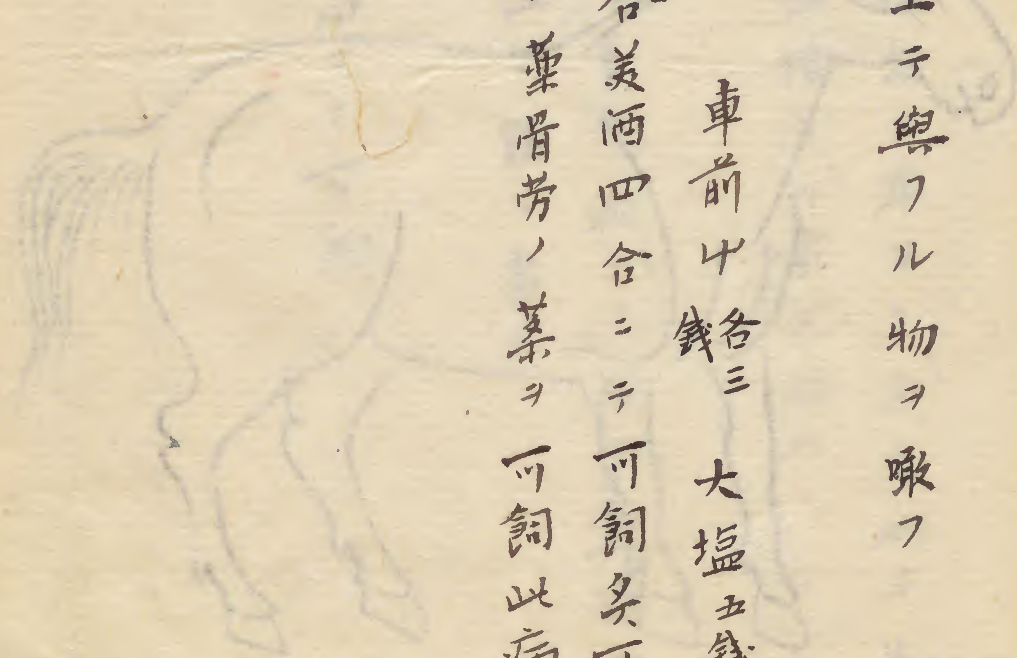 テ與フル物ヲ噉フ
車前屮各三錢 大塩五錢
美酒四合ニテ可飼炙
薬骨労ノ薬ヲ可飼此病